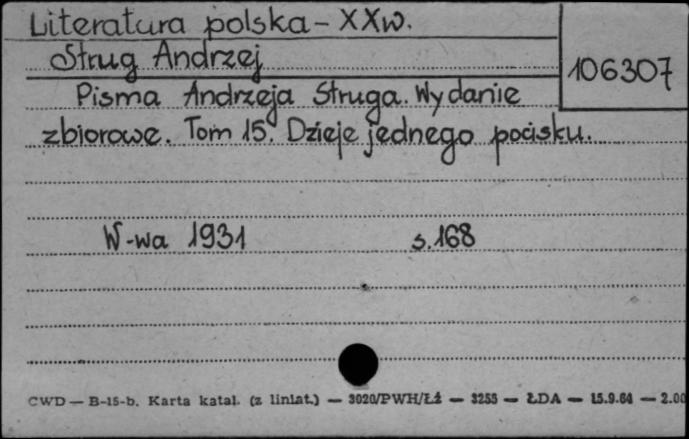 Literatura polska - XXw.
Strug Andrzej
106307
Pisma Andrzeja Struga. Wydanie
zbiorowe. Tom 15. Dzieje jednego pocisku.
W-wa 1931 s.168
CWD — B-15-b. Karta katal. (z liniat.) — 3020/PWH/Łź — 3255 — ŁDA — 15.9.64 — 2.00